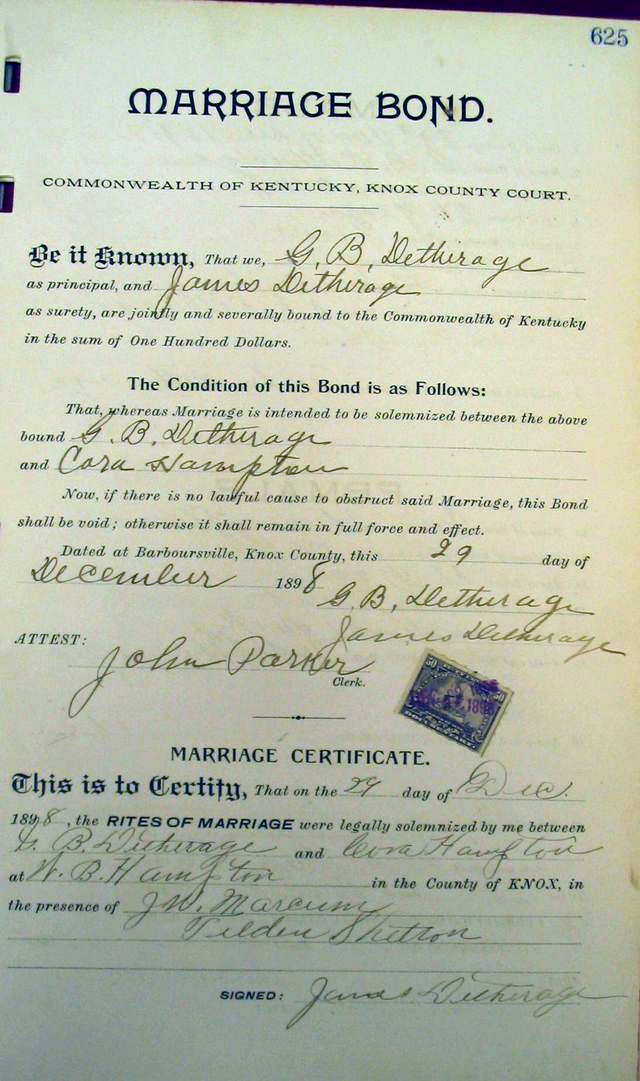 625
MARRIAGE BOND.
COMMONWEALTH OF KENTUCKY, KNOX COUNTY COURT.
Be it Known, That we, G. B. Detherage
as principal, and James Detherage
as surety, are jointly and severally bound to the Commonwealth of Kentucky
in the sum of One Hundred Dollars.
The Condition of this Bond is as Follows:
That, whereas Marriage is intended to be solemnized between the above
bound G. B. Detherage
and Cora Hampton
Now, if there is no lawful cause to obstruct said Marriage, this Bond
shall be void; otherwise it shall remain in full force and effect.
Dated at Barboursville, Knox County, this 29 day of
December 1898
G. B. Detherage
James Detherage
ATTEST:
John Parker
Clerk.
50 50
MARRIAGE CERTIFICATE.
This is to Certify, That on the 29 day of Dec.
1898, the RITES OF MARRIAGE were legally solemnized by me between
G. B. Detherage and Cora Hampton
at W. B. Hampton in the County of KNOX, in
the presence of J. W. Marcum
Tilden Shelton
SIGNED: James Detherage